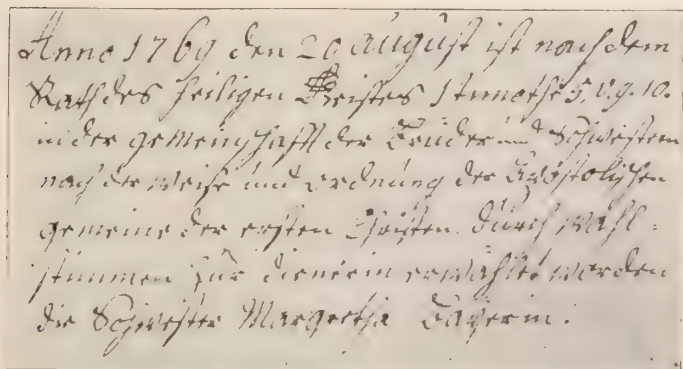 Anno 1769 den 20 august ist nach dem
Rath des Heiligen Geistes 1 timothe 5. v. 9. 10.
in der gemeinschafft der Brüder und Schwestern
nach der weise und ordnung der Apostolischen
gemeine der ersten Christen durch wahl-
stimmen zur dienerin erwählet worden
die Schwester Margretha Bayerin.